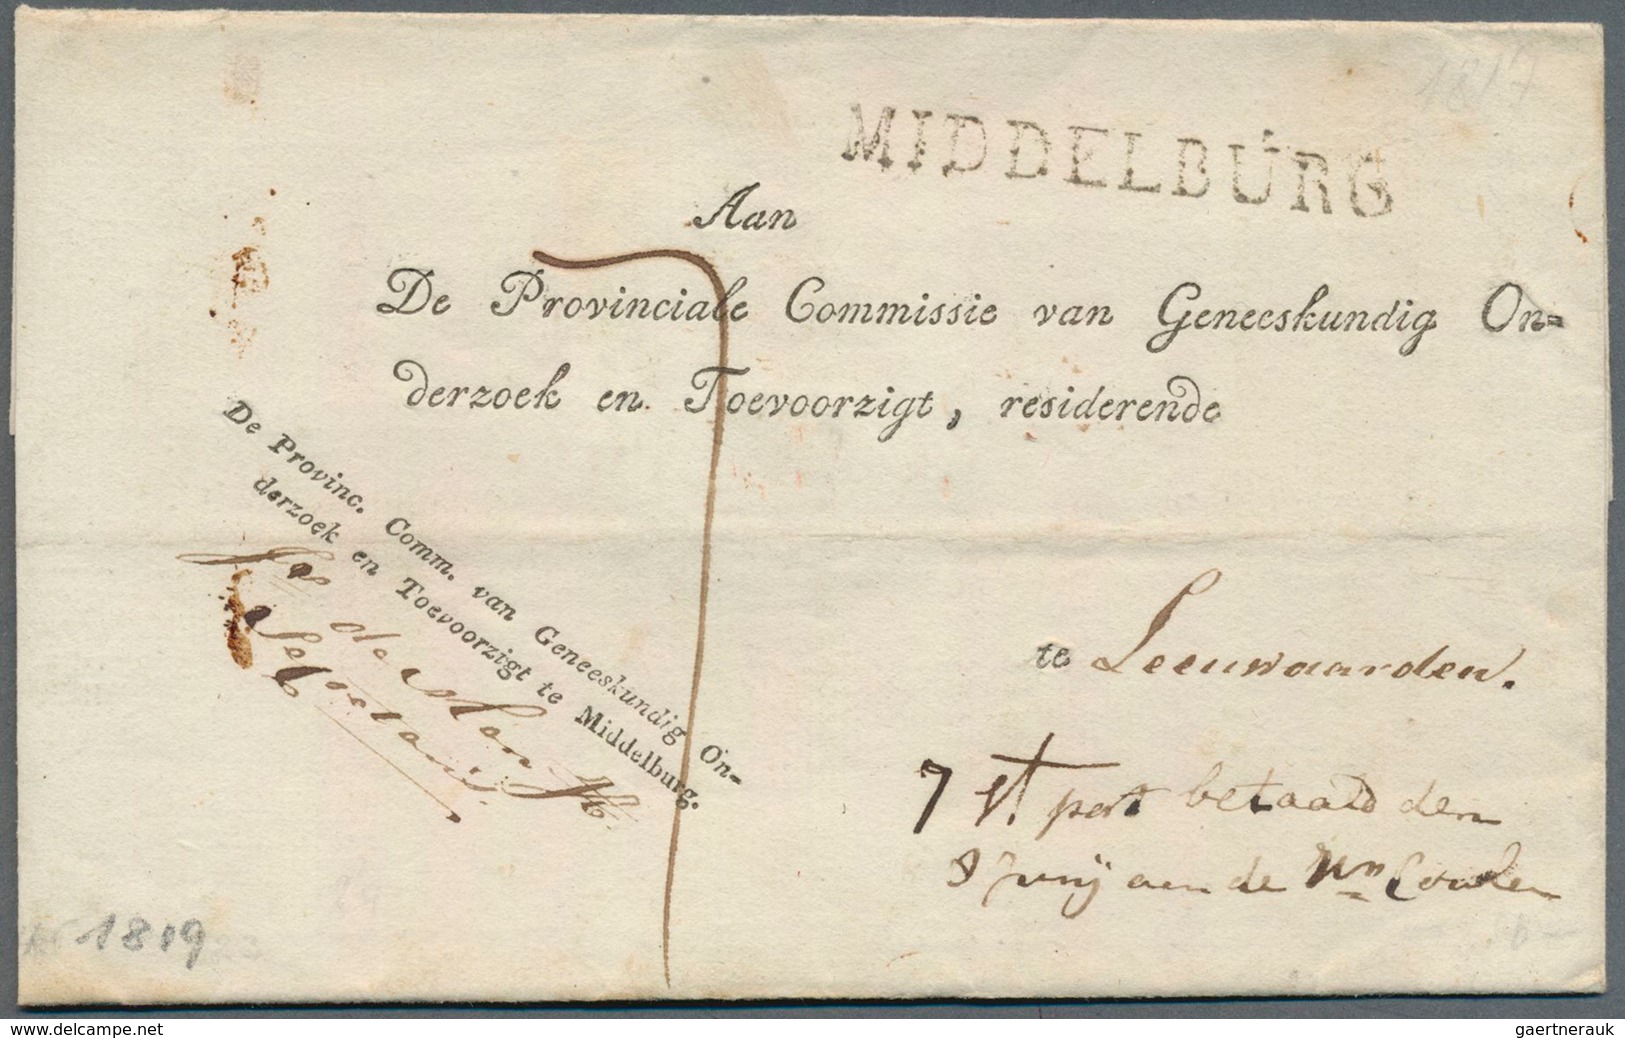 1817
MIDDELBURG
Aan
De Provinciale Commissie van Geneeskundig On=
derzoek en Toevoorzigt, residerende
De Provinc. Comm. van Geneeskundig On-
derzoek en Toevoorzigt te Middelburg.
de
Secretaris.
te Leeuwaarden.
7 st. port betaald den
Junij aan de
1819
www.delcampe.net
gaertnerauk